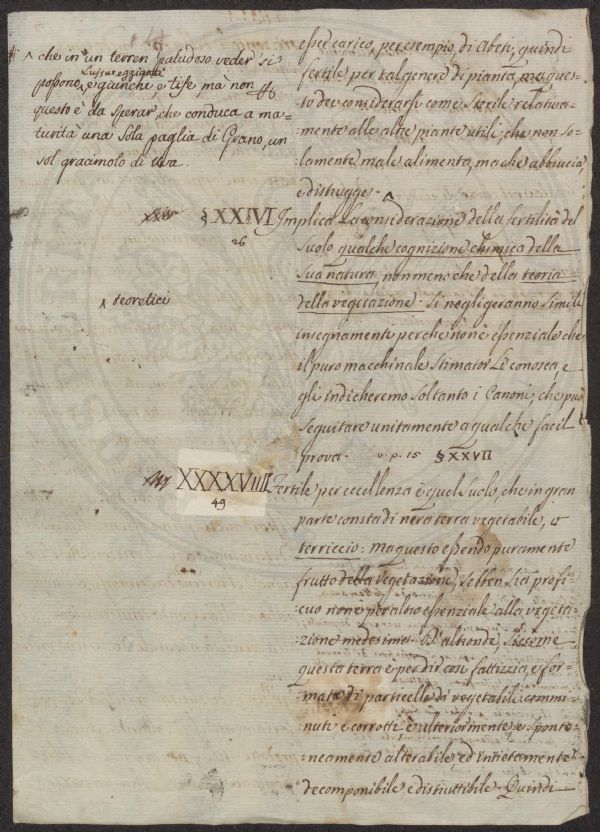 ^ che in un terren paludoso veder si
possono lussureggianti e giunche e Tife mà non
questo è da sperar, che conduca a ma=
turità una sola paglia di Grano, un
sol gracimolo di uva.
^ teoretici
esser carico, per esempio, di Abeti, quindi
fertile per tal genere di pianta, ma ques-
to dee considerarsi come sterile relativa-
mente alle altre piante utili, che non so-
lamente male alimenta, ma che abbrucia,
e distrugge. ^
§ XXIVI Implica la considerazione della fertilità del
26
suolo qualche cognizione chimica della
sua natura, non meno che della teoria
della vegetazione. Si negligeranno simili
insegnamenti perche non è essenziale che
il puro macchinale stimator li conosca, e
gli indicheremo soltanto i Canoni, che può
seguitare unitamente a qualche facil
prova. v. p. 15 § XXVII
XXXXVIIII Fertile per eccellenza è quel suolo, che in gran
49
parte consta di nera terra vegetabile, o
terriccio: ma questo essendo puramente
frutto della vegetazione, sebben sia profi-
cuo non è per altro essenziale alla vegeta-
zione medesima. D'altronde, siccome
questa terra è per dir così fattizzia, e for-
mata di particelle di vegetabili commi-
nuti e corrotti, è ulteriormente, e sponta-
neamente alterabile, ed intieramente
decomponibile e distruttibile. Quindi